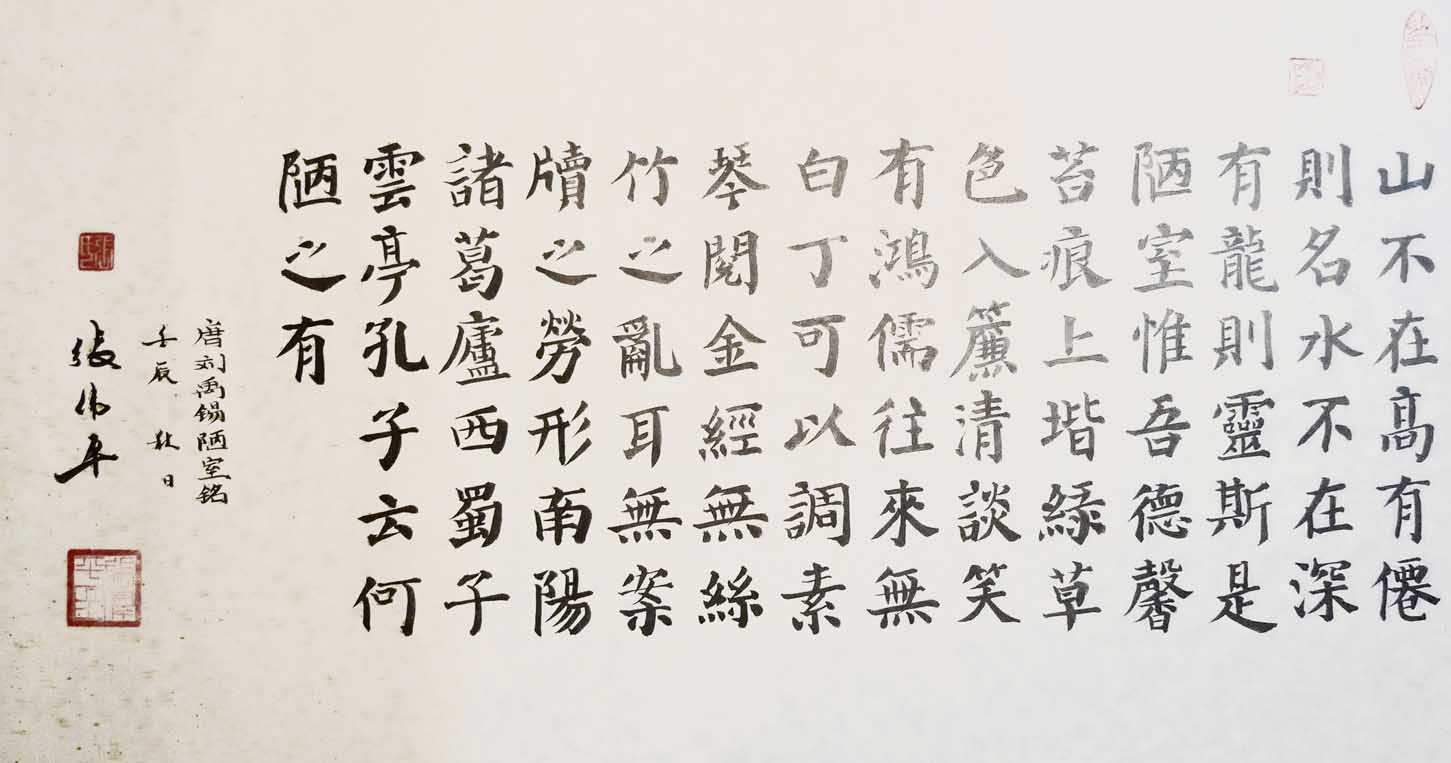 山不在髙有僊
則名水不在深
有龍則靈斯是
陋室惟吾德馨
苔痕上堦緑草
色入簾清談笑
有鴻儒往來無
白丁可以調素
琴閲金經無絲
竹之亂耳無案
牘之勞形南陽
諸葛廬西蜀子
雲亭孔子云何
陋之有
唐刘禹锡陋室铭
壬辰秋日
张伟平